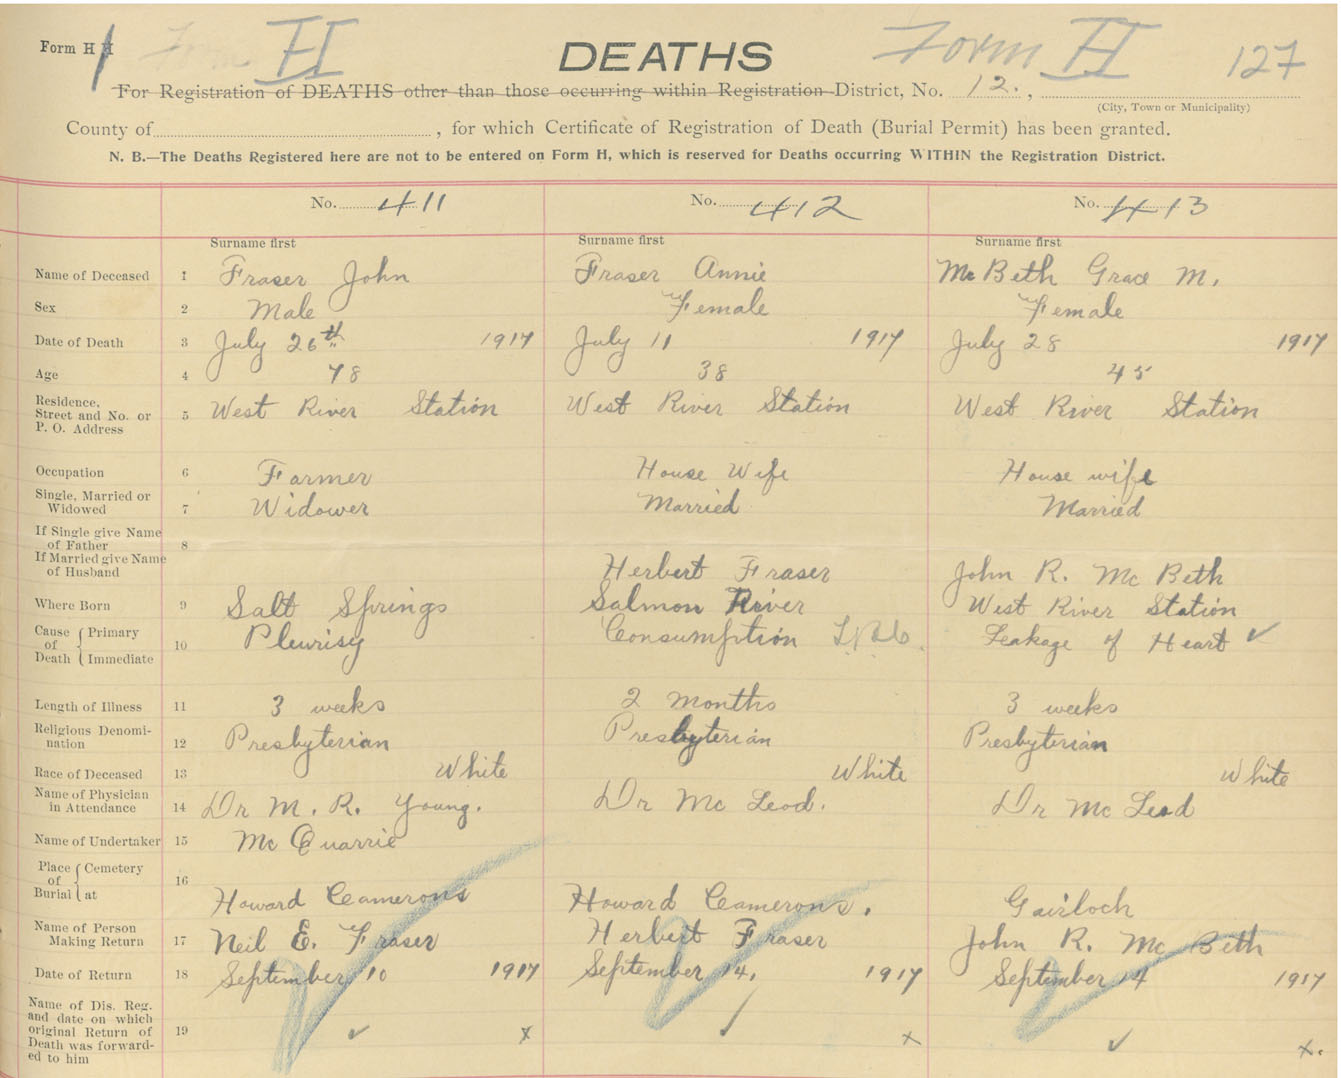 Form H H Form H DEATHS Form H 127
For Registration of DEATHS other than those occurring within Registration District, No. 12. ,
(City, Town or Municipality)
County of , for which Certificate of Registration of Death (Burial Permit) has been granted.
N. B.—The Deaths Registered here are not to be entered on Form H, which is reserved for Deaths occurring WITHIN the Registration District.
No. 411 No. 412 No. 413
Surname first Surname first Surname first
Name of Deceased 1 Fraser John Fraser Annie Mc Beth Grace M.
Sex 2 Male Female Female
Date of Death 3 July 26th 1917 July 11 1917 July 28 1917
Age 4 78 38 45
Residence,
Street and No. or 5 West River Station West River Station West River Station
P. O. Address
Occupation 6 Farmer House Wife House wife
Single, Married or
Widowed 7 Widower Married Married
If Single give Name
of Father 8
If Married give Name
of Husband Herbert Fraser John R. Mc Beth
Where Born 9 Salt Springs Salmon River West River Station
Cause of Death { Primary 10 Pleurisy Consumption Leakage of Heart ✓
Immediate
Length of Illness 11 3 weeks 2 months 3 weeks
Religious Denomi-
nation 12 Presbyterian Presbyterian Presbyterian
Race of Deceased 13 White White White
Name of Physician
in Attendance 14 Dr M. R. Young. Dr Mc Leod. Dr Mc Leod
Name of Undertaker 15 Mc Quarrie
Place of Burial { Cemetery 16
at Howard Camerons Howard Camerons. Gairloch
Name of Person
Making Return 17 Neil E. Fraser Herbert Fraser John R. Mc Beth
Date of Return 18 September 10 1917 September 14, 1917 September 14 1917
Name of Dis. Reg.
and date on which
original Return of 19 ✓ x ✓ x ✓ x.
Death was forward-
ed to him